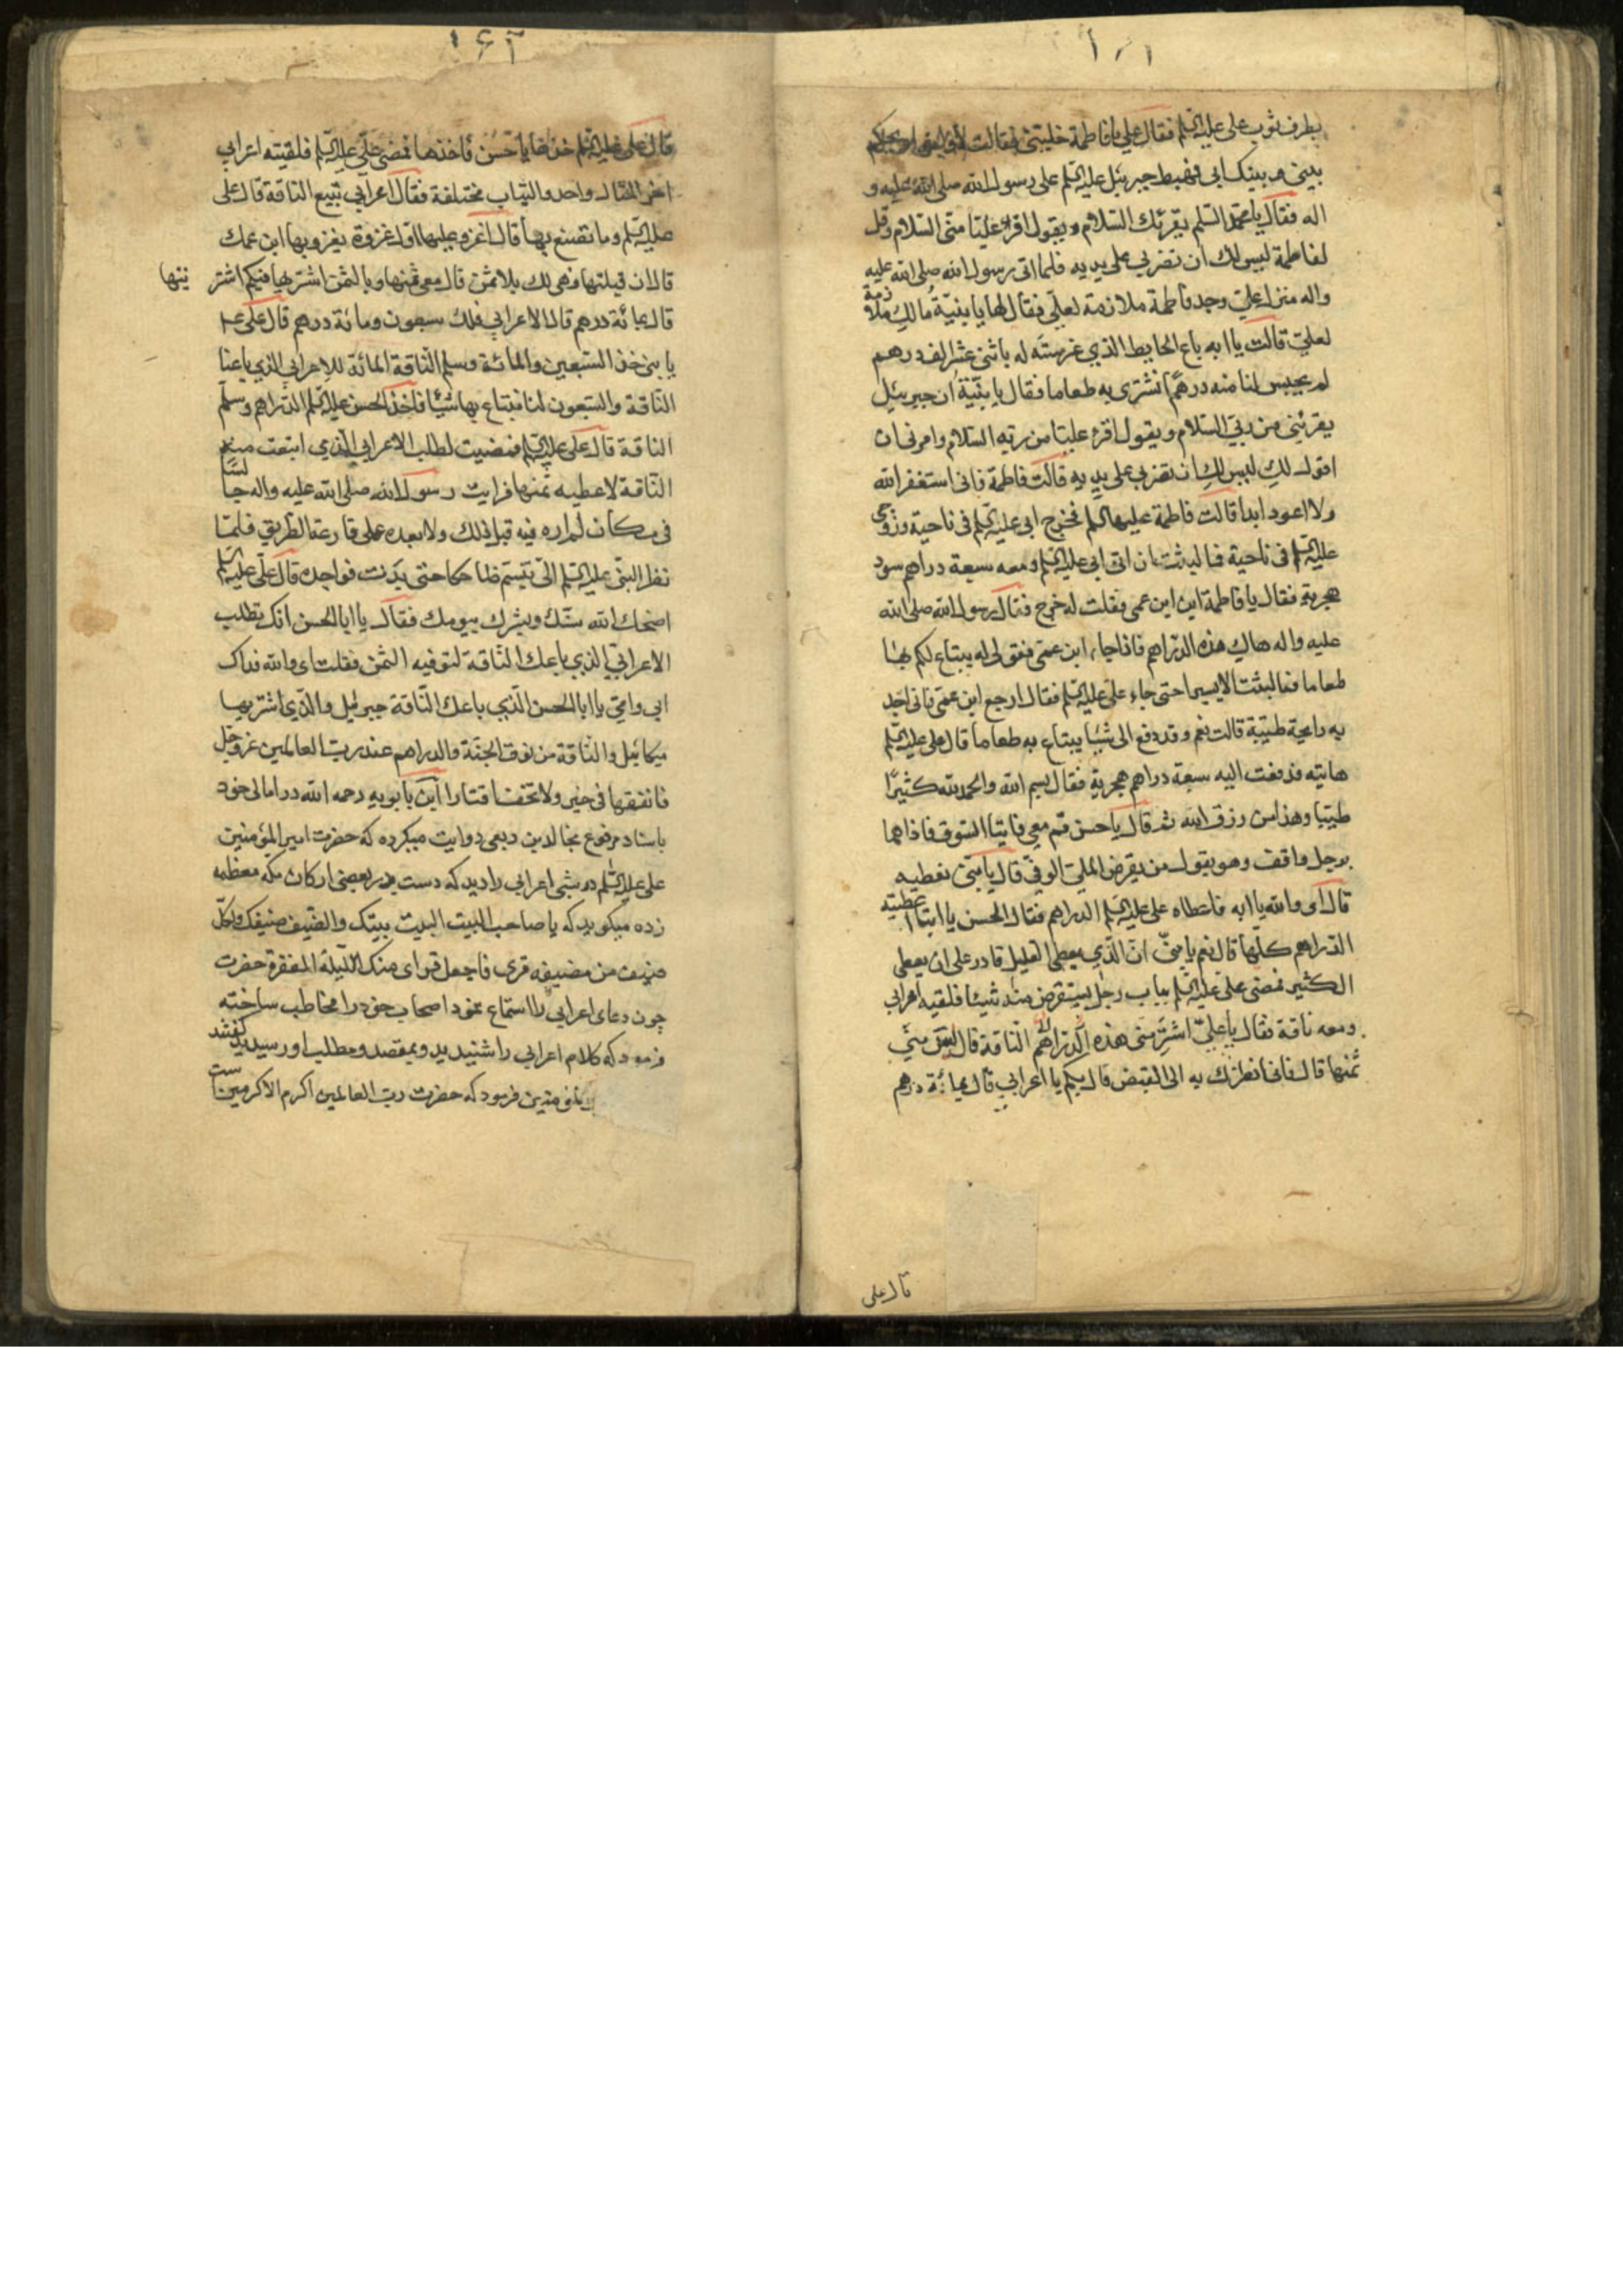 بطرف ثوب علی علیه السلم فقال علی یا فاطمة خلیتنی فقالت لا والله او یحکم
بینی و بینک ابی فهبط جبرئیل علیه السلم علی رسول الله صلی الله علیه و
اله فقال یا محمد السلم یقرئک السلام و یقول اقرء علیّا منّی السلام و قل
لفاطمة لیس لک ان تضربی علی یدیه فلما اتی رسول الله صلی الله علیه
واله منزل علیّ وجد فاطمة ملازمة لعلیّ فقال لها یا بنیّة مالک ملازمة
لعلیّ قالت یا ابه باع الحایط الذی غرسته له باثنی عشر الف درهم
لم یحبس لنا منه درهمًا نشتری به طعاما فقال یا بنیّة ان جبرئیل
یقرئنی من ربّی السلام و یقول اقرء علیّا من ربّه السّلام و امرنی ان
اقول لکِ لیس لکِ ان تضربی علی یدیه قالت فاطمة فانی استغفر الله
ولا اعود ابدا قالت فاطمة علیها السلم فخرج ابی علیه السلم فی ناحیة وزوجی
علیه السلم فی ناحیة فما لبث ان اتی ابی علیه السلم و معه سبعة دراهم سود
هجریة فقال یا فاطمة این ابن عمی فقلت له خرج فقال رسول الله صلی الله
علیه و اله هاک هذه الدّراهم فاذا جاء ابن عمّی فقولی له یبتاع لکم بها
طعاما فما لبثت الا یسیرا حتی جاء علیّ علیه السلم فقال ارجع ابن عمّی فانی اجد
به رایحة طیّبة قالت نعم و قد دفع الی شیئا یبتاع به طعاما قال علی علیه السلم
هاتیه فدفعت الیه سبعة دراهم هجریة فقال بسم الله والحمد لله کثیرًا
طیّبا وهذا من رزق الله ثم قال یا حسن قم معی فاتیا السّوق فاذا هما
برجل واقف و هو یقول من یقرض الملیّ الوفیّ قال یا بنّی نعطیه
قال ای والله یا ابه فاعطاه علی علیه السلم الدراهم فقال الحسن یا ابتا اعطیته
الدّراهم کلّها قال نعم یا بنیّ انّ الّذی یعطی القلیل قادر علی ان یعطی
الکثیر فمضی علیّ علیه السلم بباب رجل یستقرض منه شیئا فلقیه اعرابی
و معه ناقة فقال یا علیّ اشتر منی هذه الناقة قال لیس معی
ثمنها قال فانی انظرک به الی القبض قال بکم یا اعرابی قال بمائة درهم
قال علی
قال علی علیه السلم خذها یا حسن فاخذها فمضی علّی علیه السلم فلقیته اعرابی
اخر المثال واحد والثیاب مختلفة فقال اعرابی تبیع الناقة قال علی
علیه السلم وما تصنع بها قال اغزو علیها اوّل غزوة یغزوبها ابن عمک
قال ان قبلتها فهی لک بلا ثمن قال معی ثمنها و بالثمن اشتریها فبکم اشتر
یتها
قال بمائة درهم قال الاعرابی فلک سبعون و مائة درهم قال علی ع
یا بنی خذ السّبعین والمائة و سلم النّاقة المائة للاعرابی الذی باعنا
النّاقة والسّبعون لنا نبتاع بها شیئا فاخذ الحسن علیه السلم الدّراهم و سلّم
الناقة قال علی علیه السلم فمضیت لطلب الاعرابی الّذی ابتعت منه
النّاقة لاعطیه ثمنها فرایت رسول الله صلی الله علیه واله جالسًا
فی مکان لم اره فیه قبل ذلک ولا بعده علی قارعة الطریق فلمّا
نظر النبی علیه السلم الیّ تبسّم ضاحکا حتی بدت نواجذه قال علّی علیه السلم
اضحک الله سنّک وبشرک بیومک فقال یا ابا الحسن انک تطلب
الاعرابّی الذی باعک النّاقة لتوفیه الثمن فقلت ای والله فداک
ابی وامّی یا ابا الحسن الّذی باعک النّاقة جبرئیل والّذی اشتریها
میکائیل والنّاقة من نوق الجنّة والدراهم عند ربّ العالمین عزوجل
فانفقها فی خیر ولا تخف اقتارا ابن بابویه رحمه الله در امالی خود
باسناد مرفوع بخالد بن ربعی روایت میکرده که حضرت امیرالمؤمنین
علی علیه السّلم در شبی اعرابی را دید که دست در بعضی ارکان مکه معظمه
زده میکوید که یا صاحب البیت البیت بیتک والضّیف ضیفک ولکلّ
ضیف من مضیفه قری فاجعل قرای منک اللّیلة المغفرة حضرت
چون دعای اعرابی را استماع نمود اصحاب خود را مخاطب ساخته
فرمود که کلام اعرابی را شنیدید و بمقصد و مطلب او رسیدید کفتند
فرمود که حضرت ربّ العالمین اکرم الاکرمین است